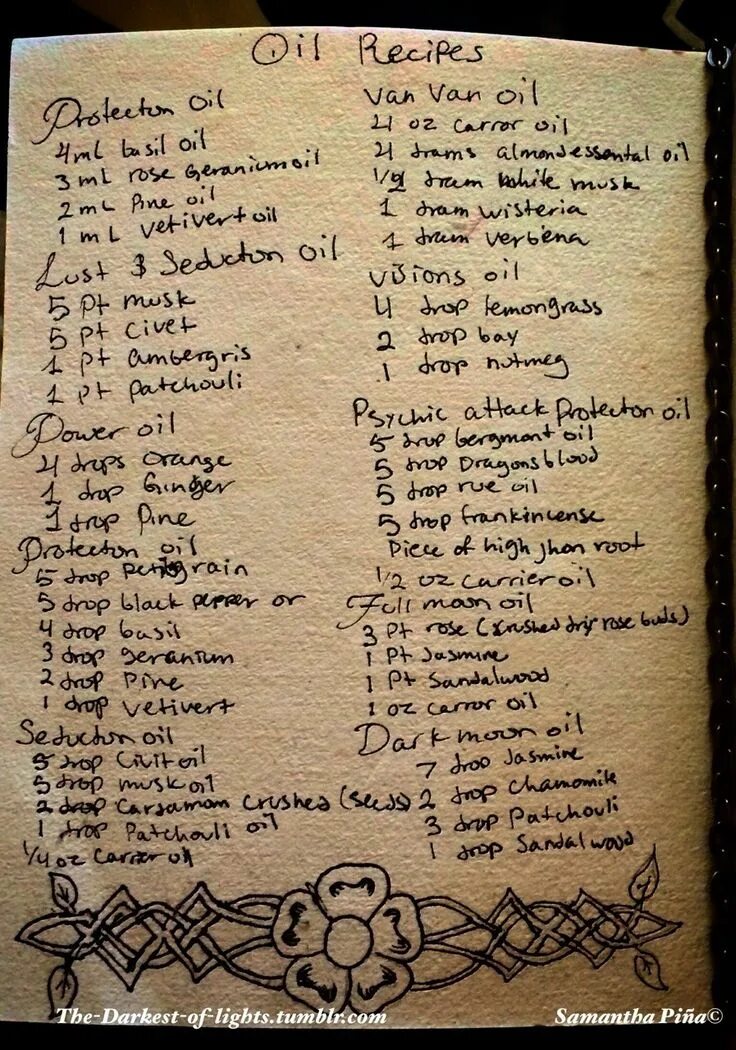 Oil Recipes
Protecton Oil
4 mL basil oil
3 mL rose Geranium oil
2 mL Pine oil
1 mL vetivert oil
Lust & Seducton Oil
5 Pt musk
5 Pt civet
1 Pt ambergris
1 Pt patchouli
Power oil
4 drops orange
1 drop Ginger
1 drop Pine
Protecton oil
5 drop petitgrain
5 drop black pepper or
4 drop basil
3 drop geranium
2 drop Pine
1 drop vetivert
Seducton oil
5 drop Civit oil
5 drop musk oil
2 drop Cardamom crushed (seeds)
1 drop Patchouli oil
1/4 oz Carrier oil
Van Van oil
4 oz carror oil
4 drams almond essental oil
1/2 dram white musk
1 dram wisteria
1 dram verbena
visions oil
4 drop lemongrass
2 drop bay
1 drop nutmeg
Psychic attack Protecton oil
5 drop bergmont oil
5 drop Dragonsblood
5 drop rue oil
5 drop frankincense
Piece of high jhon root
1/2 oz carrier oil
Full moon oil
3 Pt rose (crushed dry rose buds)
1 Pt Jasmine
1 Pt Sandalwood
1 oz carror oil
Dark moon oil
7 drop Jasmine
2 drop chamomile
3 drop Patchouli
1 drop Sandalwood
The-Darkest-of-lights.tumblr.com
Samantha Piña©